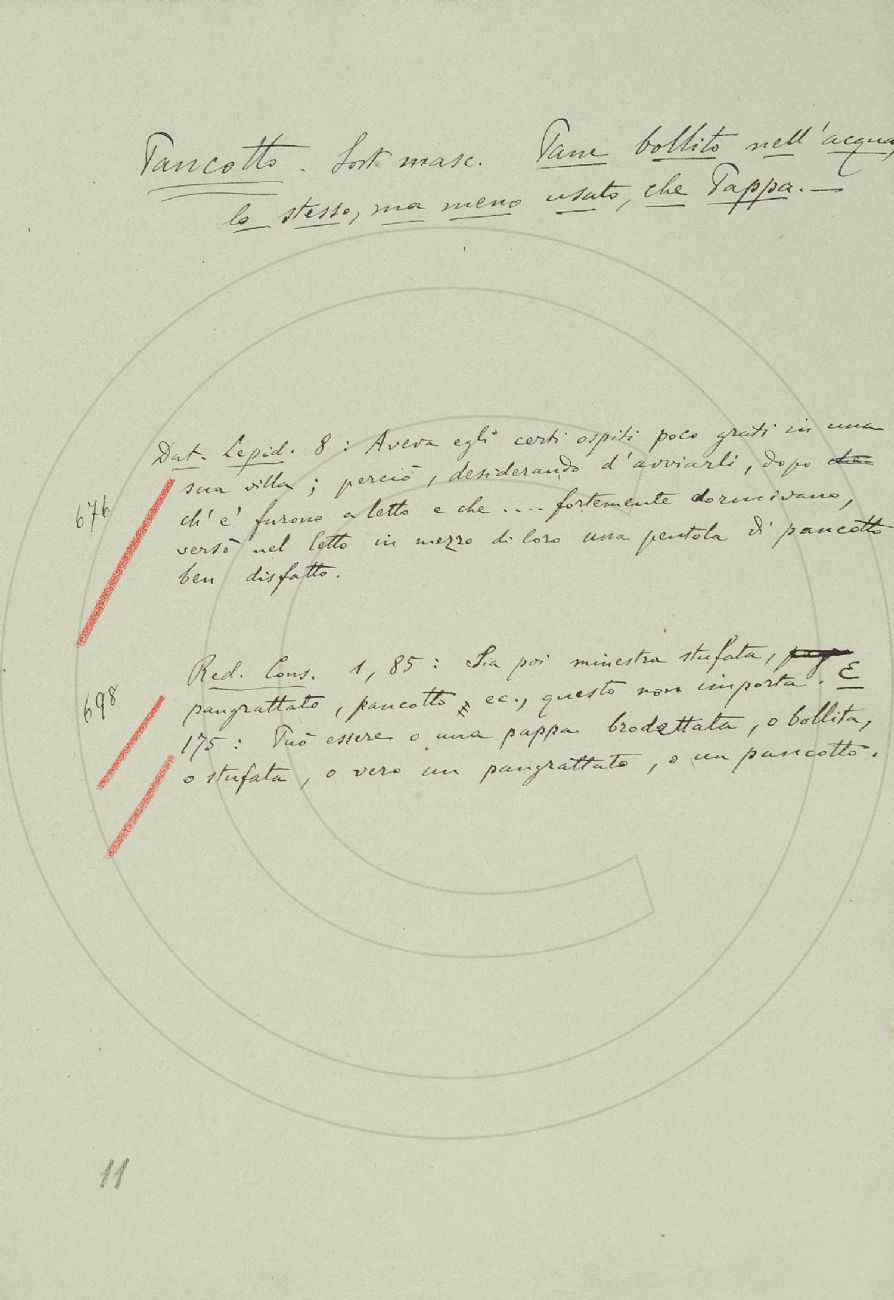 Pancotto. Sost. masc. Pane bollito nell'acqua,
lo stesso, ma meno usato, che Pappa. —
Dat. Lepid. 8: Aveva egli certi ospiti poco grati in una
676
sua villa; perciò, desiderando d'avviarli, dopo che
ch' e' furono a letto e che .... fortemente dormivano,
versò nel letto in mezzo di loro una pentola di pancotto
ben disfatto.
Red. Cons. 1, 85: Sia poi minestra stufata,
698
pangrattato, pancotto, ec., questo non importa. E
175: Può essere o una pappa brodettata, o bollita,
o stufata, o vero un pangrattato, o un pancotto.
11